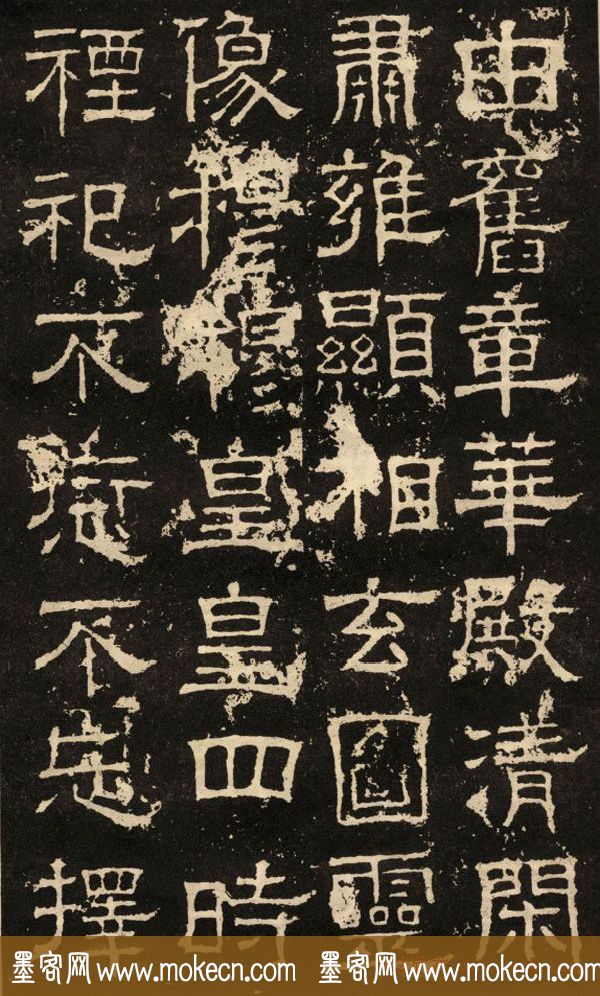 由舊章華殿清閑
肅雍顯相玄圖靈
像穆穆皇皇四時
禋祀不愆不忘擇
墨客网 www.mokecn.com 墨客网 www.mokecn.com